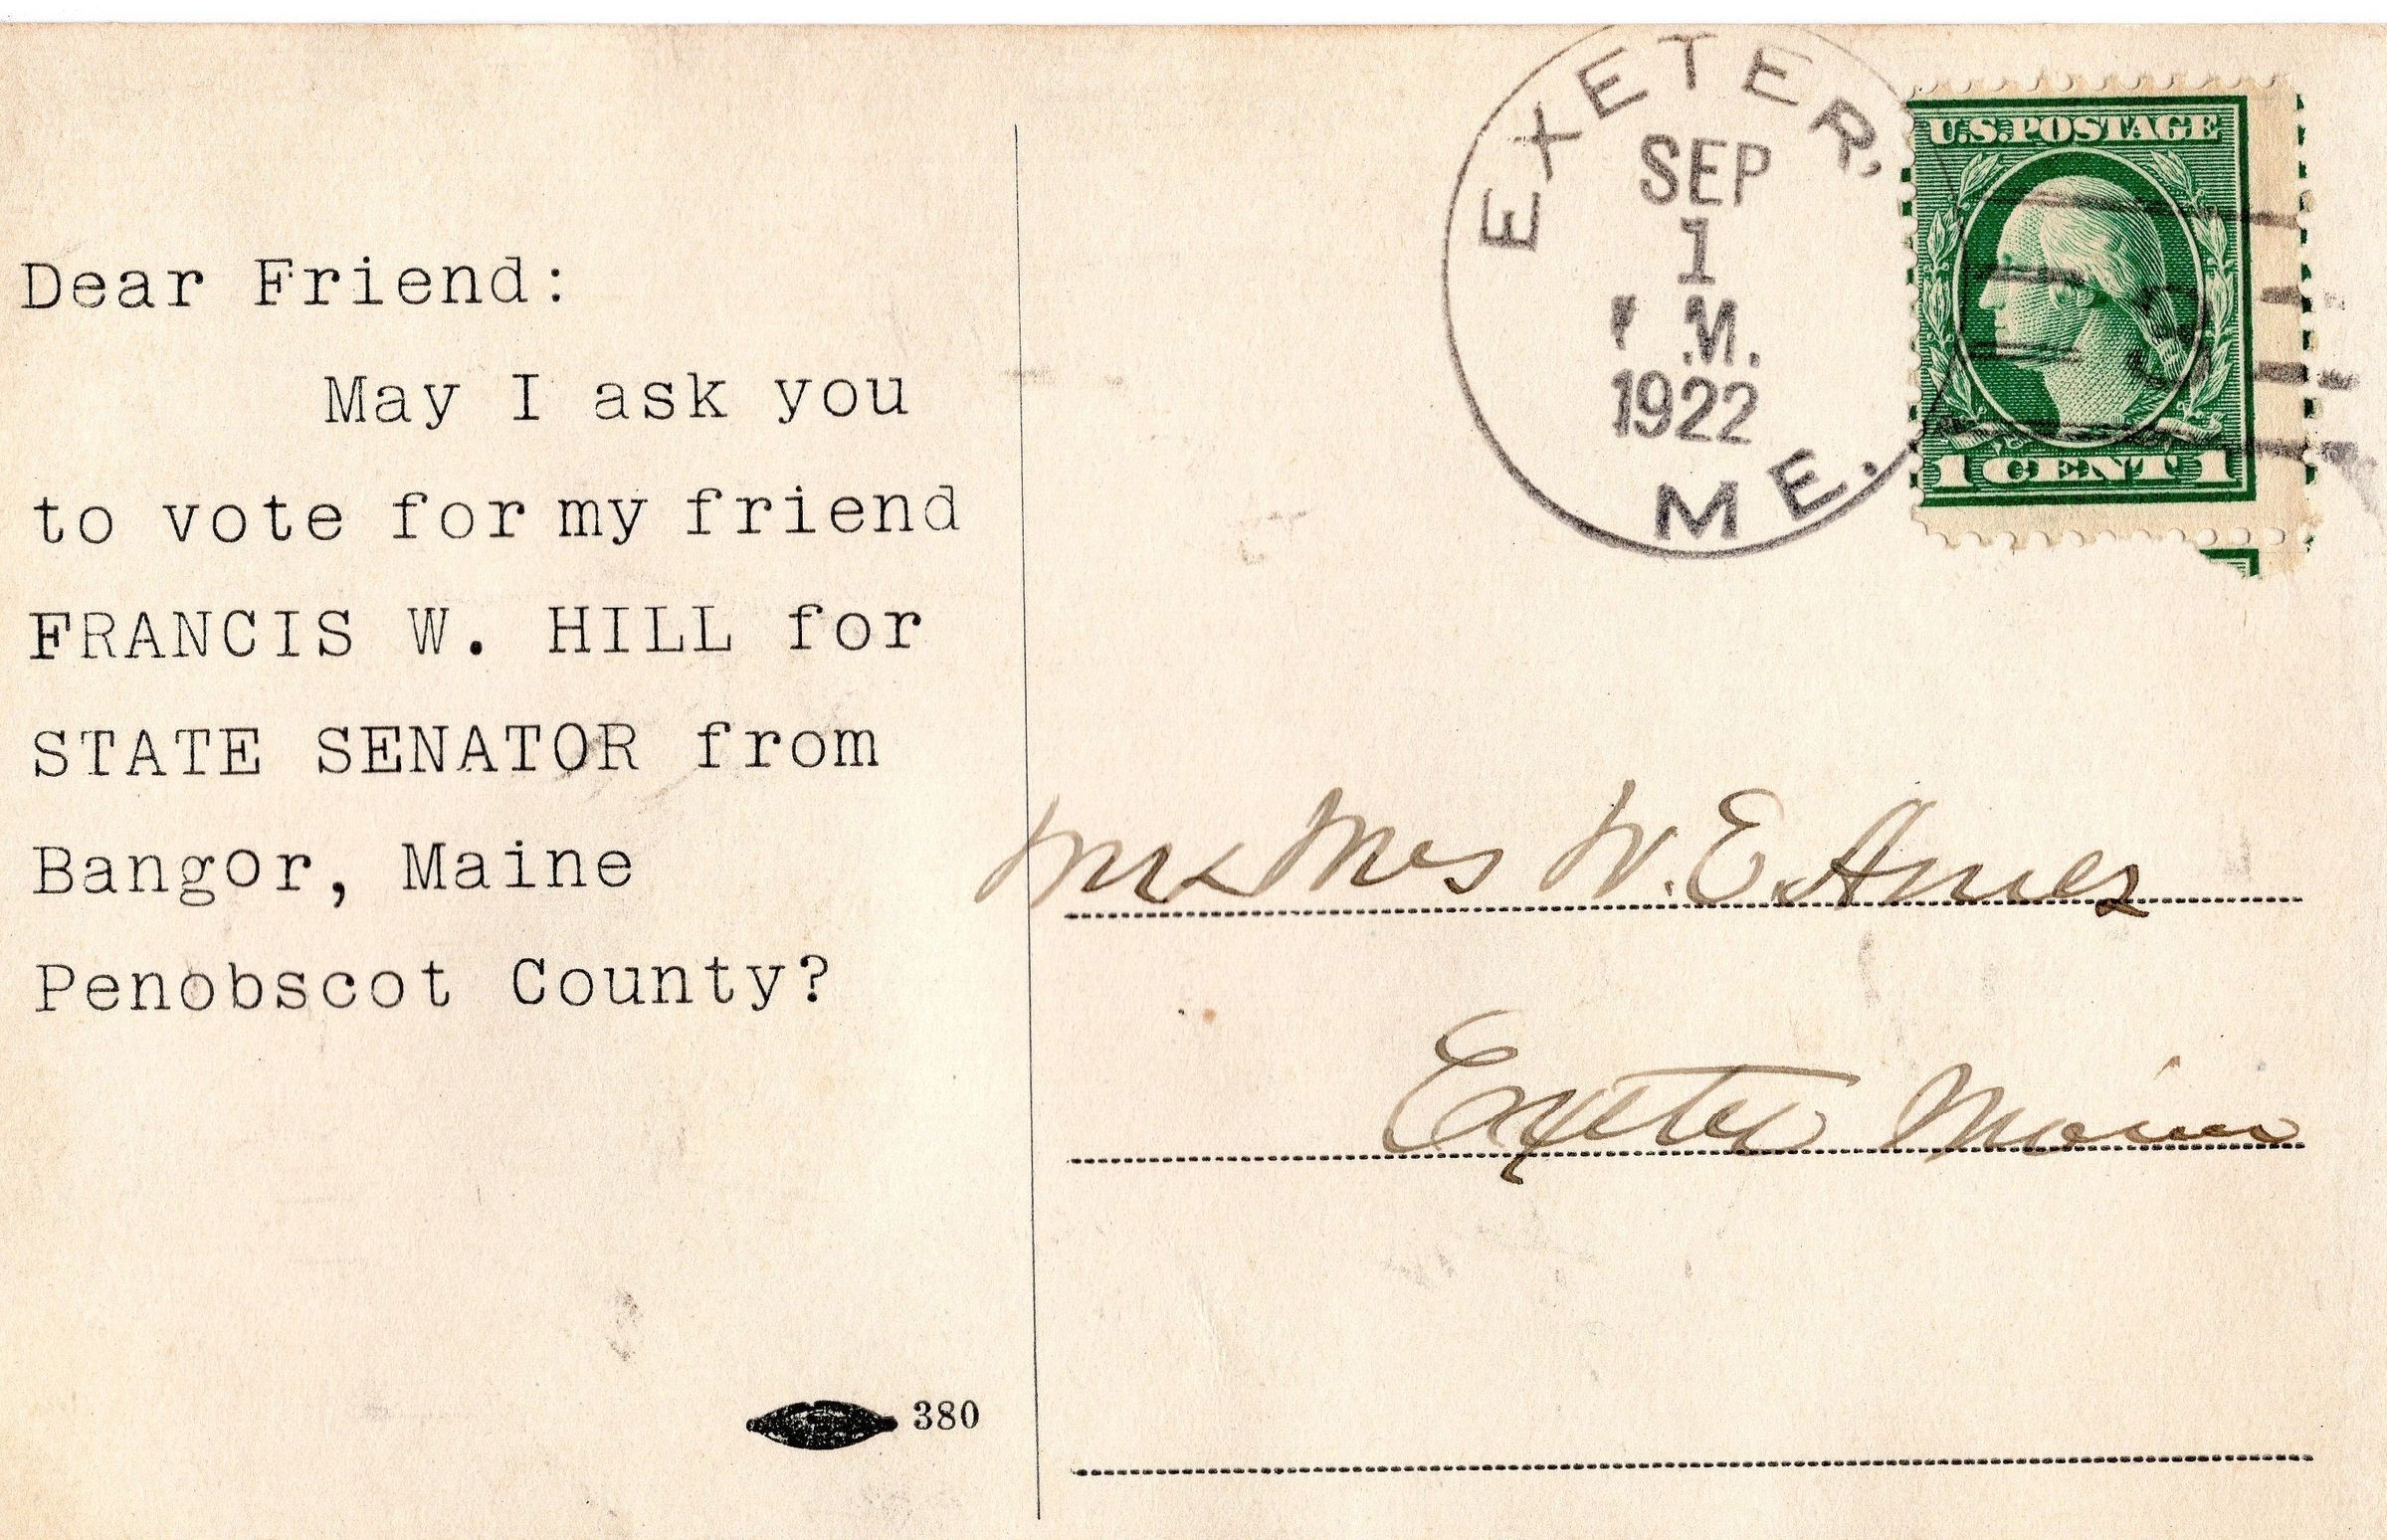 Dear Friend:
May I ask you
to vote for my friend
FRANCIS W. HILL for
STATE SENATOR from
Bangor, Maine
Penobscot County?
380
EXETER,
SEP
1
M.
1922
ME.
U.S. POSTAGE
1 CENT 1
Mr & Mrs W. E. Ames
Exeter Maine